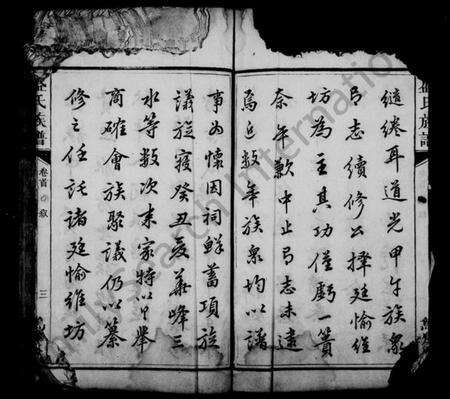 氏族譜
繾綣耳道光甲午族衆
有志續修公擇廷愉維
坊為主其功僅虧一簣
奈年歉中止有志未逮
焉近數年族衆均以譜
事為懷因祠鮮蓄項旋
議旋寢癸丑夏華峰三
水等數次來家特以是舉
商確會族聚議仍以纂
修之任託諸廷愉維坊
氏族譜 卷首 三
FamilySearch International